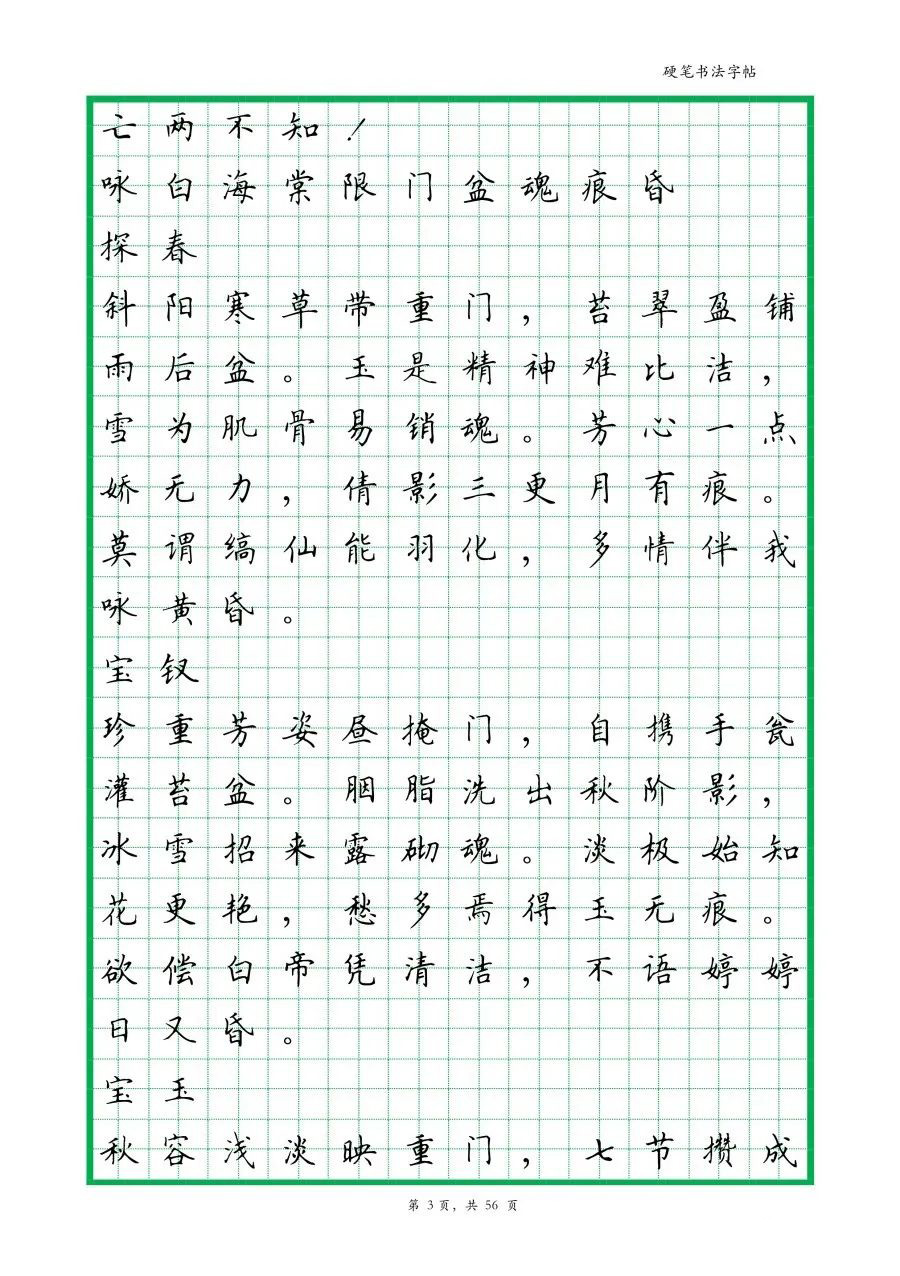 硬笔书法字帖
亡两不知！
咏白海棠限门盆魂痕昏
探春
斜阳寒草带重门，苔翠盈铺
雨后盆。玉是精神难比洁，
雪为肌骨易销魂。芳心一点
娇无力，倩影三更月有痕。
莫谓缟仙能羽化，多情伴我
咏黄昏。
宝钗
珍重芳姿昼掩门，自携手瓮
灌苔盆。胭脂洗出秋阶影，
冰雪招来露砌魂。淡极始知
花更艳，愁多焉得玉无痕。
欲偿白帝凭清洁，不语婷婷
日又昏。
宝玉
秋容浅淡映重门，七节攒成
第 3 页，共 56 页